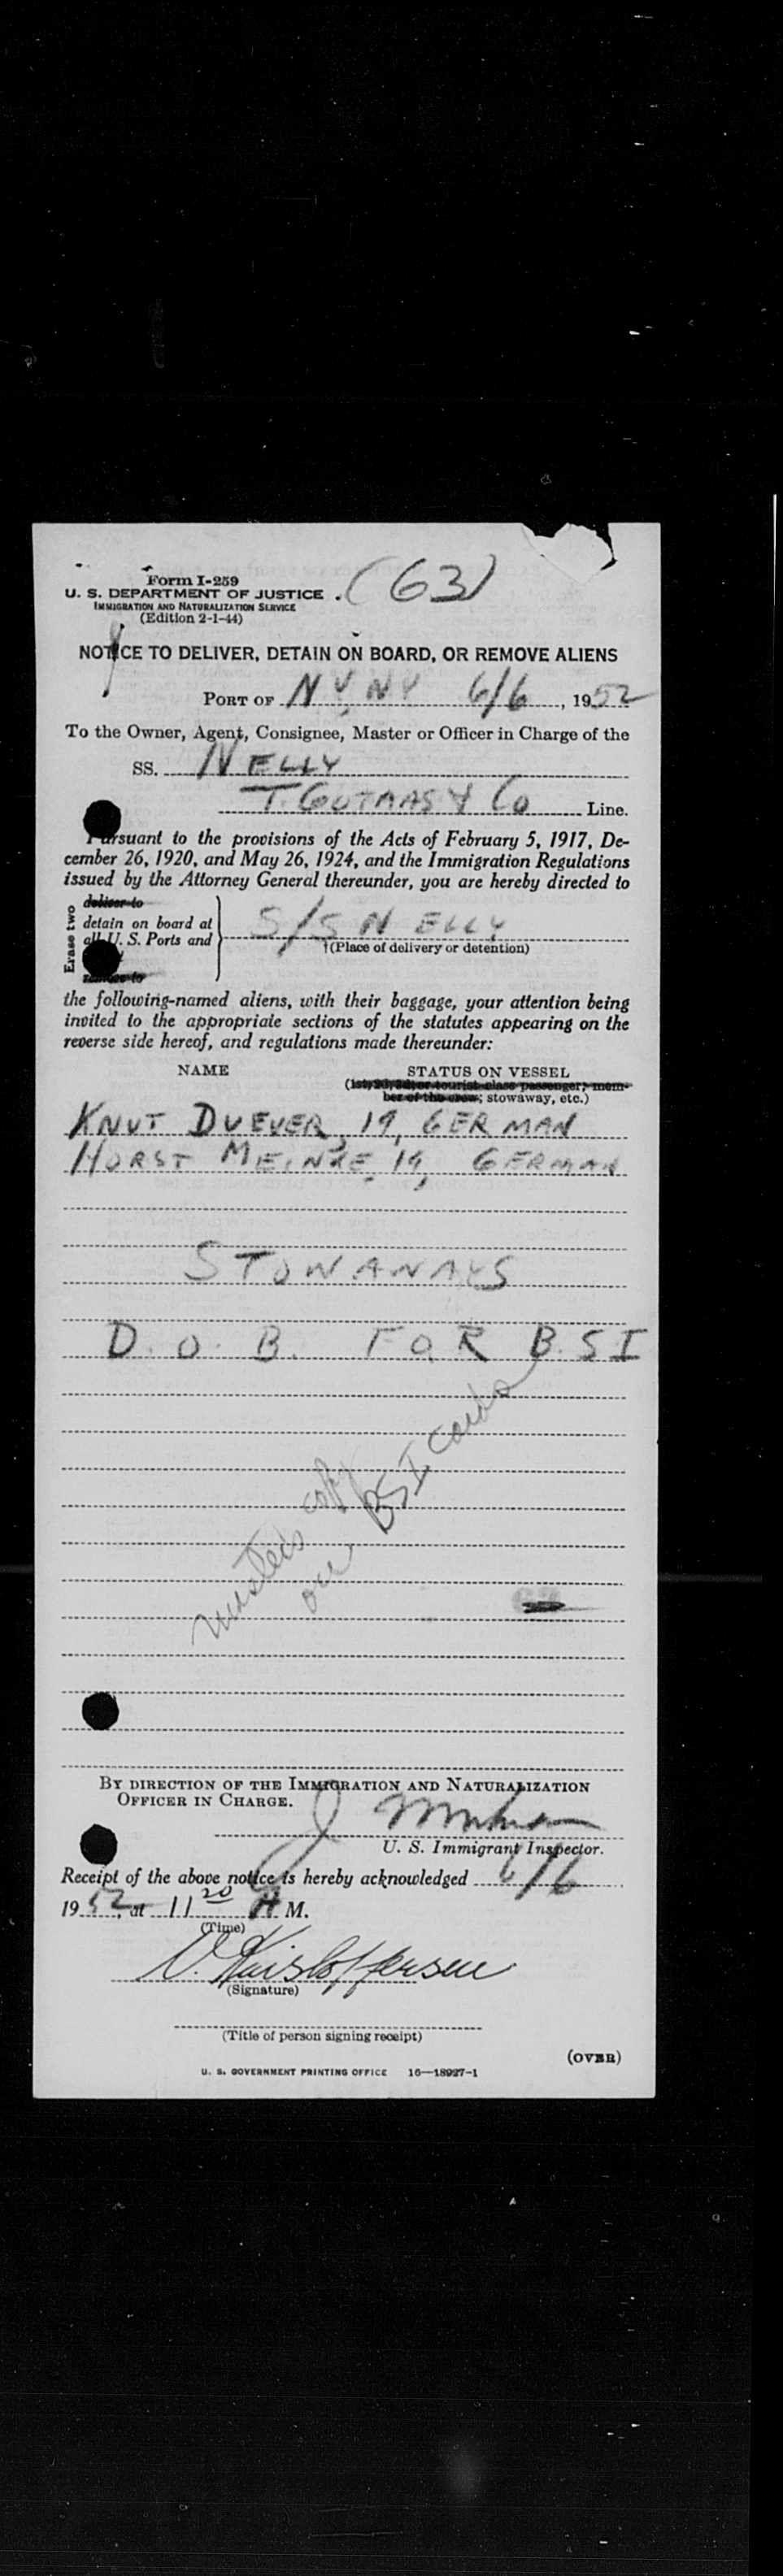 (63)
Form I-259
U. S. DEPARTMENT OF JUSTICE
IMMIGRATION AND NATURALIZATION SERVICE
(Edition 2-1-44)
NOTICE TO DELIVER, DETAIN ON BOARD, OR REMOVE ALIENS
PORT OF NY, NY 6/6, 1952
To the Owner, Agent, Consignee, Master or Officer in Charge of the
SS. NELLY
T. GOTAAS & Co Line.
Pursuant to the provisions of the Acts of February 5, 1917, De-
cember 26, 1920, and May 26, 1924, and the Immigration Regulations
issued by the Attorney General thereunder, you are hereby directed to
Erase two
deliver to
detain on board at
all U. S. Ports and
remove to
S/S NELLY
(Place of delivery or detention)
the following-named aliens, with their baggage, your attention being
invited to the appropriate sections of the statutes appearing on the
reverse side hereof, and regulations made thereunder:
NAME STATUS ON VESSEL
(1st, 2d, 3d, or tourist-class passenger; mem-
ber of the crew; stowaway, etc.)
KNUT DUEVER, 19, GERMAN
HORST MEINKE, 19, GERMAN
STOWAWAYS
D. O. B. FOR B.S I
Master's copy
on BSI Cards
BY DIRECTION OF THE IMMIGRATION AND NATURALIZATION
OFFICER IN CHARGE.
U. S. Immigrant Inspector.
Receipt of the above notice is hereby acknowledged 6/6
1952, at 11 20 A M.
(Time)
Kristoffersen
(Signature)
(Title of person signing receipt)
(OVER)
U. S. GOVERNMENT PRINTING OFFICE 16—18927-1